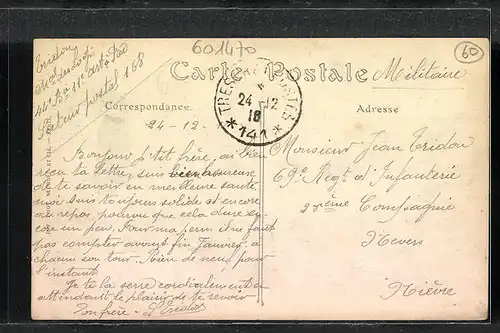 601470
60
Tridon
Secteur postal 168
Carte Postale
Militaire
TRESOR ET POSTES
24 12
18
* 141 *
Correspondance.
Adresse
24-12-
Bonjour p'tit frère, ai bien
reçu ta lettre, suis bien
de te savoir en meilleure santé,
moi suis toujours solide et encore
au repos, pourvu que cela dure en-
core un peu. Pour ma perm il ne faut
pas compter avant fin Janvier, à
chacun son tour. Rien de neuf pour
l'instant.
Je te la serre cordialement en
attendant le plaisir de te revoir
Ton frère
Monsieur Jean Tridon
69e Regt d'Infanterie
Compagnie
Nevers
Nièvre